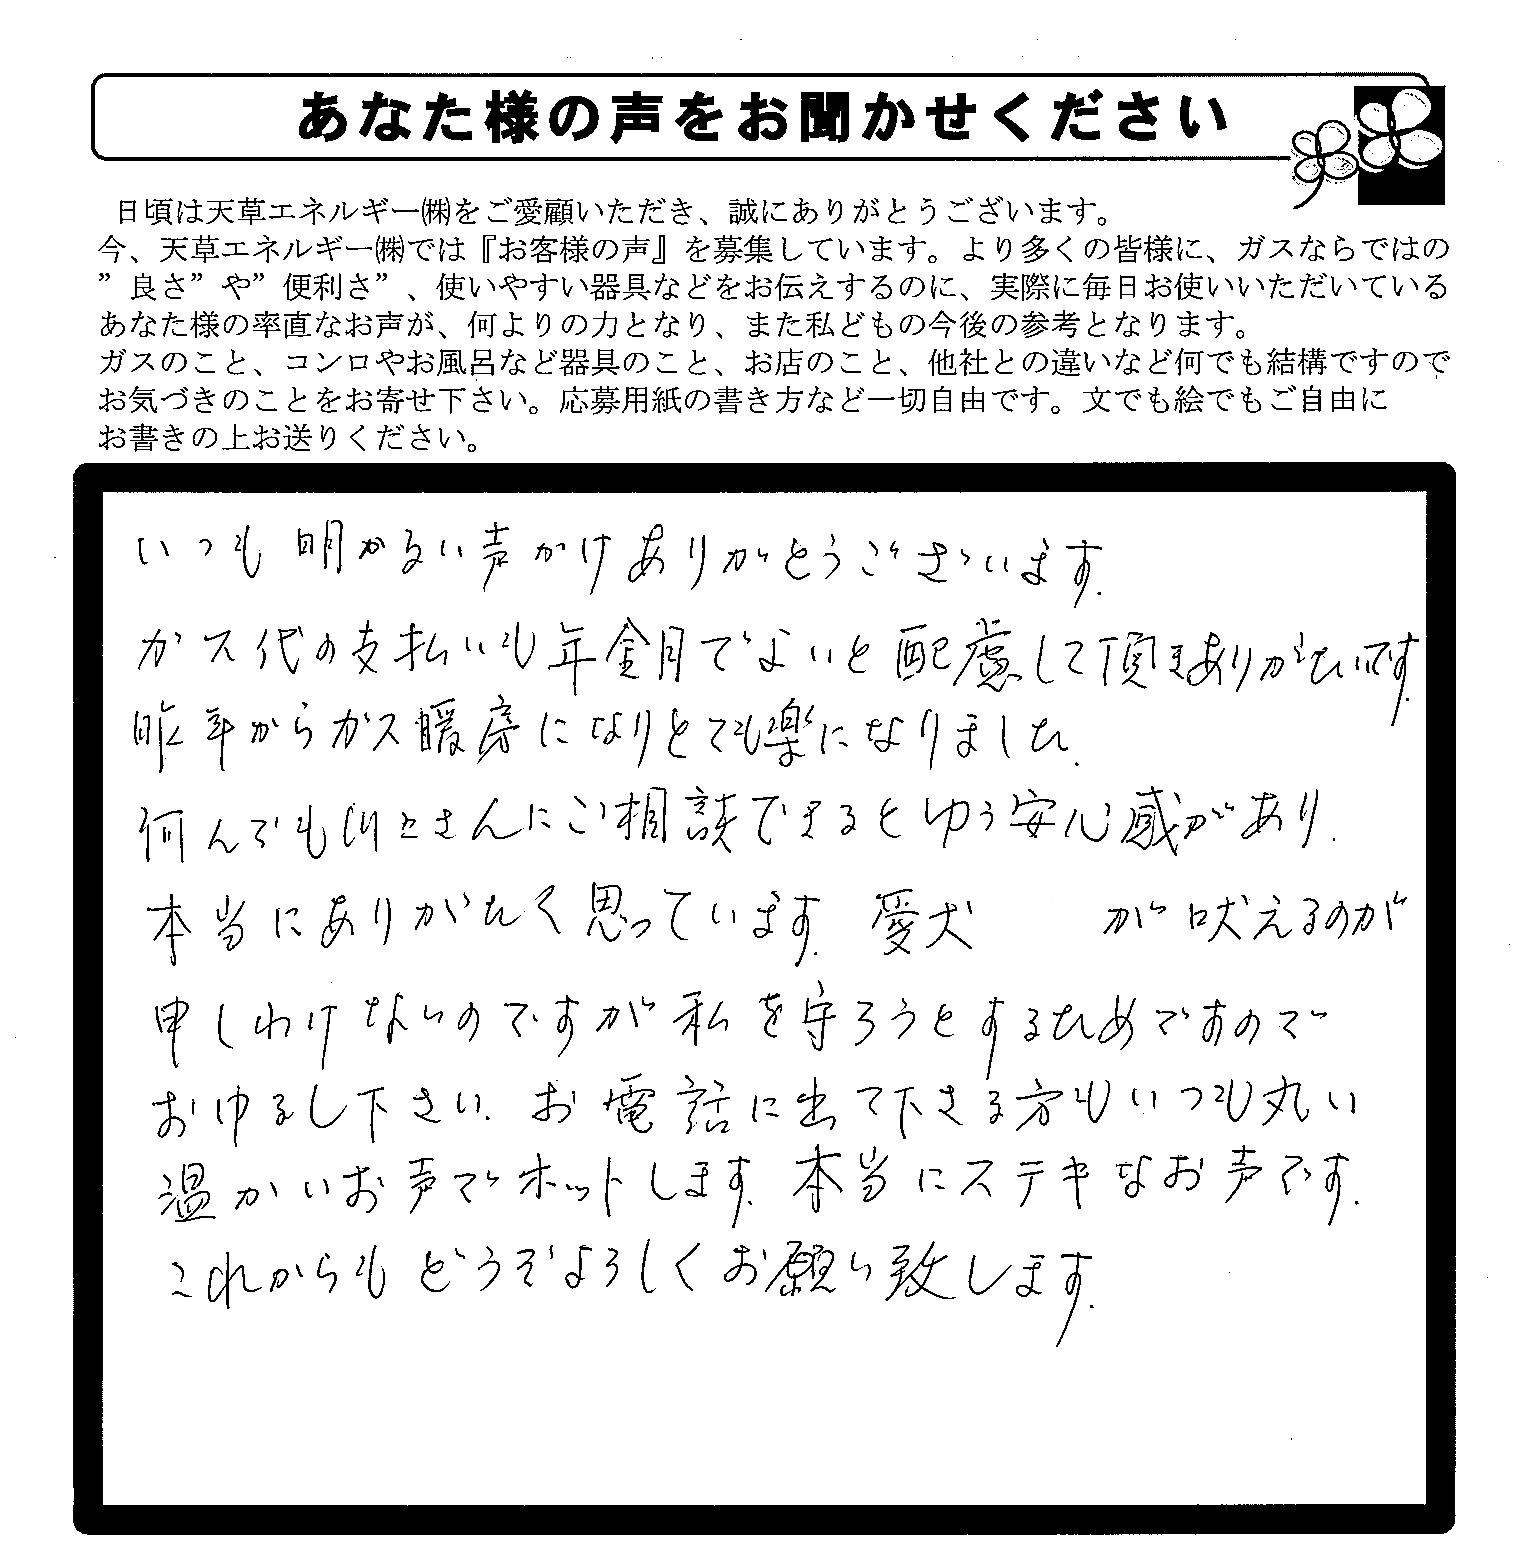 あなた様の声をお聞かせください
日頃は天草エネルギー㈱をご愛顧いただき、誠にありがとうございます。
今、天草エネルギー㈱では『お客様の声』を募集しています。より多くの皆様に、ガスならではの
”良さ”や”便利さ”、使いやすい器具などをお伝えするのに、実際に毎日お使いいただいている
あなた様の率直なお声が、何よりの力となり、また私どもの今後の参考となります。
ガスのこと、コンロやお風呂など器具のこと、お店のこと、他社との違いなど何でも結構ですので
お気づきのことをお寄せ下さい。応募用紙の書き方など一切自由です。文でも絵でもご自由に
お書きの上お送りください。
いつも明かるい声かけありがとうございます.
ガス代の支払いも年金月でよいと配慮して頂きありがたいです.
昨年からガス暖房になりとても楽になりました.
何んでも さんにご相談できるとゆう安心感があり.
本当にありがたく思っています.愛犬 が吠えるのが
申しわけないのですが私を守ろうとするためですので
おゆるし下さい.お電話に出て下さる方もいつも丸い
温かいお声でホットします.本当にステキなお声です.
これからもどうぞよろしくお願い致します.